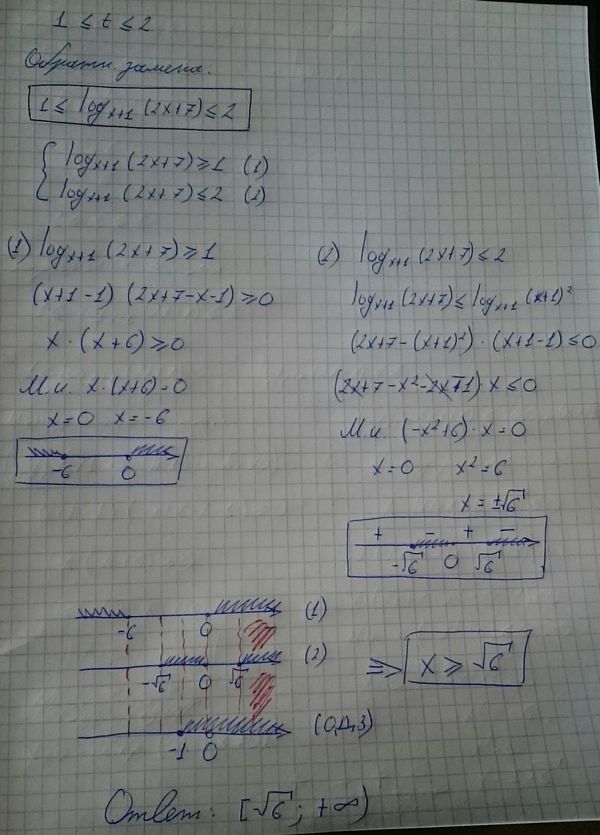 1 ≤ t ≤ 2
Обратн. замена:
1 ≤ log_{x+1} (2x+7) ≤ 2
{ log_{x+1} (2x+7) ≥ 1 (1)
log_{x+1} (2x+7) ≤ 2 (2)
(1) log_{x+1} (2x+7) ≥ 1
(x+1-1) (2x+7-x-1) ≥ 0
x · (x+6) ≥ 0
М.и. x·(x+6) = 0
x=0 x=-6
-6 0
(2) log_{x+1} (2x+7) ≤ 2
log_{x+1} (2x+7) ≤ log_{x+1} (x+1)²
(2x+7-(x+1)²) · (x+1-1) ≤ 0
(2x+7-x²-2x-1)·x ≤ 0
М.и. (-x²+6)·x = 0
x=0 x²=6
x=±√6
+ - + -
-√6 0 √6
-6 0 (1)
-√6 0 √6 (2)
-1 0 (ОДЗ)
=> x ≥ √6
Ответ: [√6; +∞)